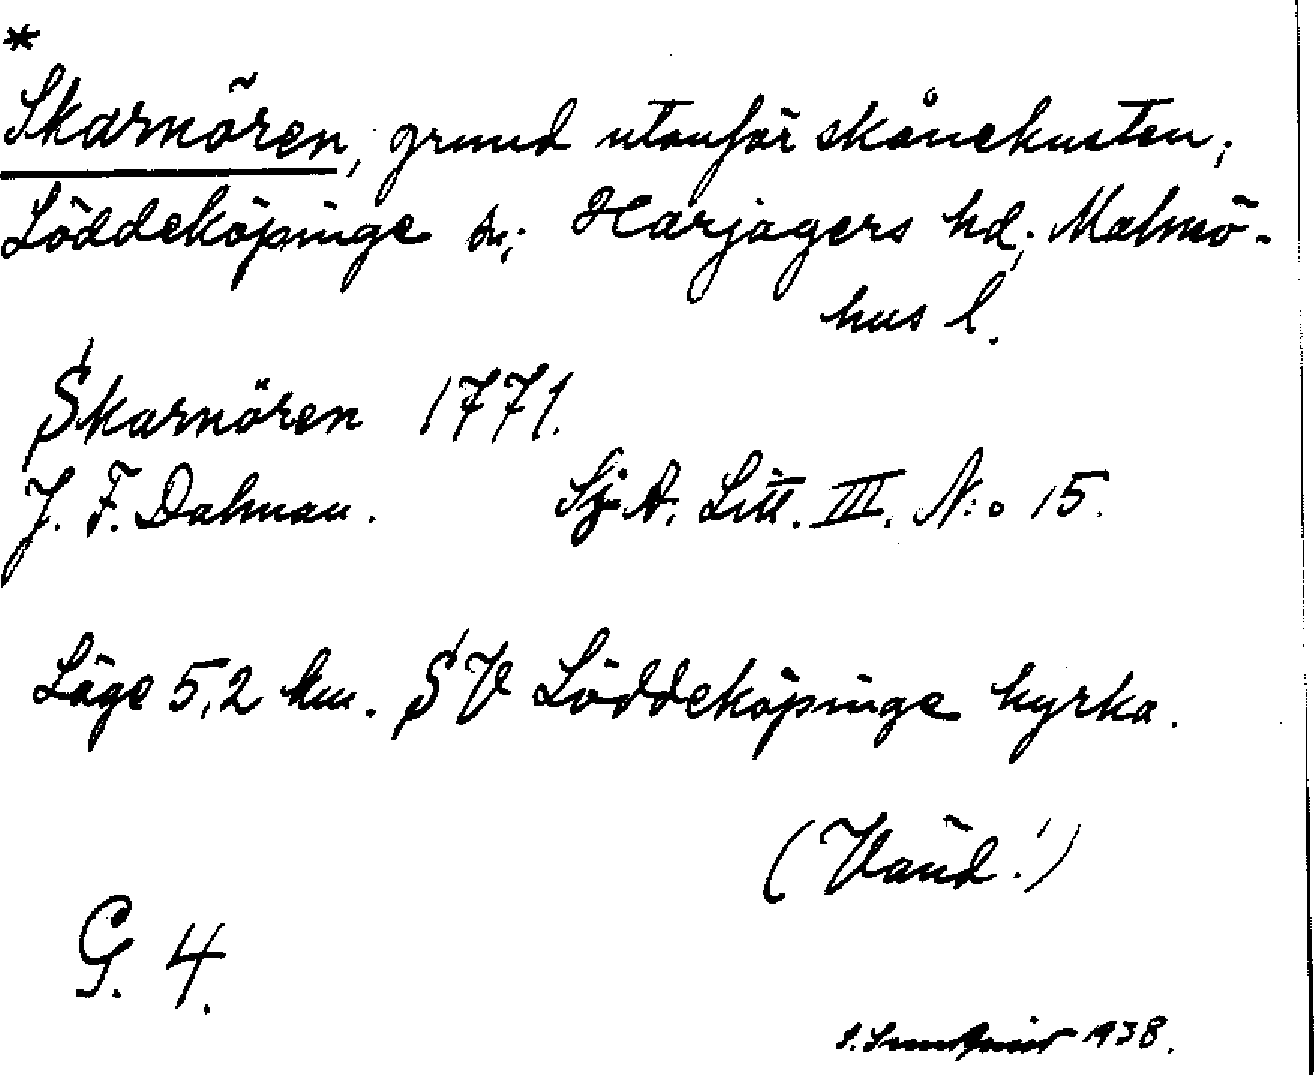 *
Skarnören, grund utanför skånekusten,
Löddeköpinge sn; Harjagers hd; Malmö-
hus l.
Skarnören 1771.
J. F. Dalman. Sj. A. Litt. III. N:o 15.
Läge 5,2 km. SV Löddeköpinge kyrka.
(Vänd!)
G. 4.
1938.